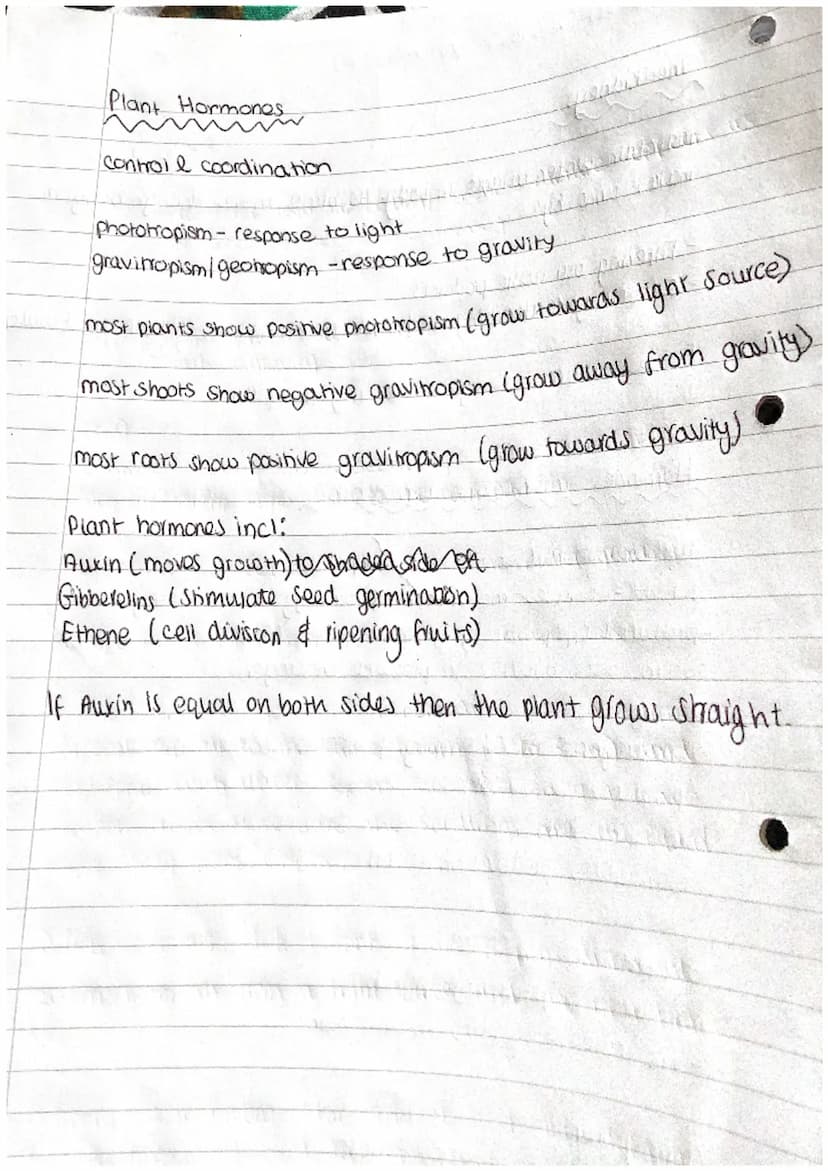 Plant Hormones
control & coordination
phototropism - response to light
gravitropism/geotropism - response to gravity
most plants show positive phototropism (grow towards light source)
most shoots show negative gravitropism (grow away from gravity)
most roots show positive gravitropism (grow towards gravity)
Plant hormones incl:
Auxin (moves growth) to shaded side
Gibberelins (stimulate seed germination)
Ethene (cell division & ripening fruits)
If Auxin is equal on both sides then the plant grows straight.